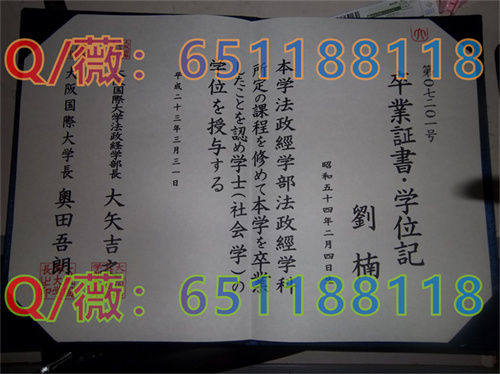 Q/薇：651188118
第〇七二〇一号
卒業証書・学位記
劉楠
昭和五十四年二月四日
本学法政經学部法政經学科
所定の課程を修めて本学を卒業
したことを認め学士（社会学）の
学位を授与する
平成二十三年三月三一日
国際大学法政經学部長 大矢吉之
大阪国際大学長 奥田吾朗
Q/薇：651188118